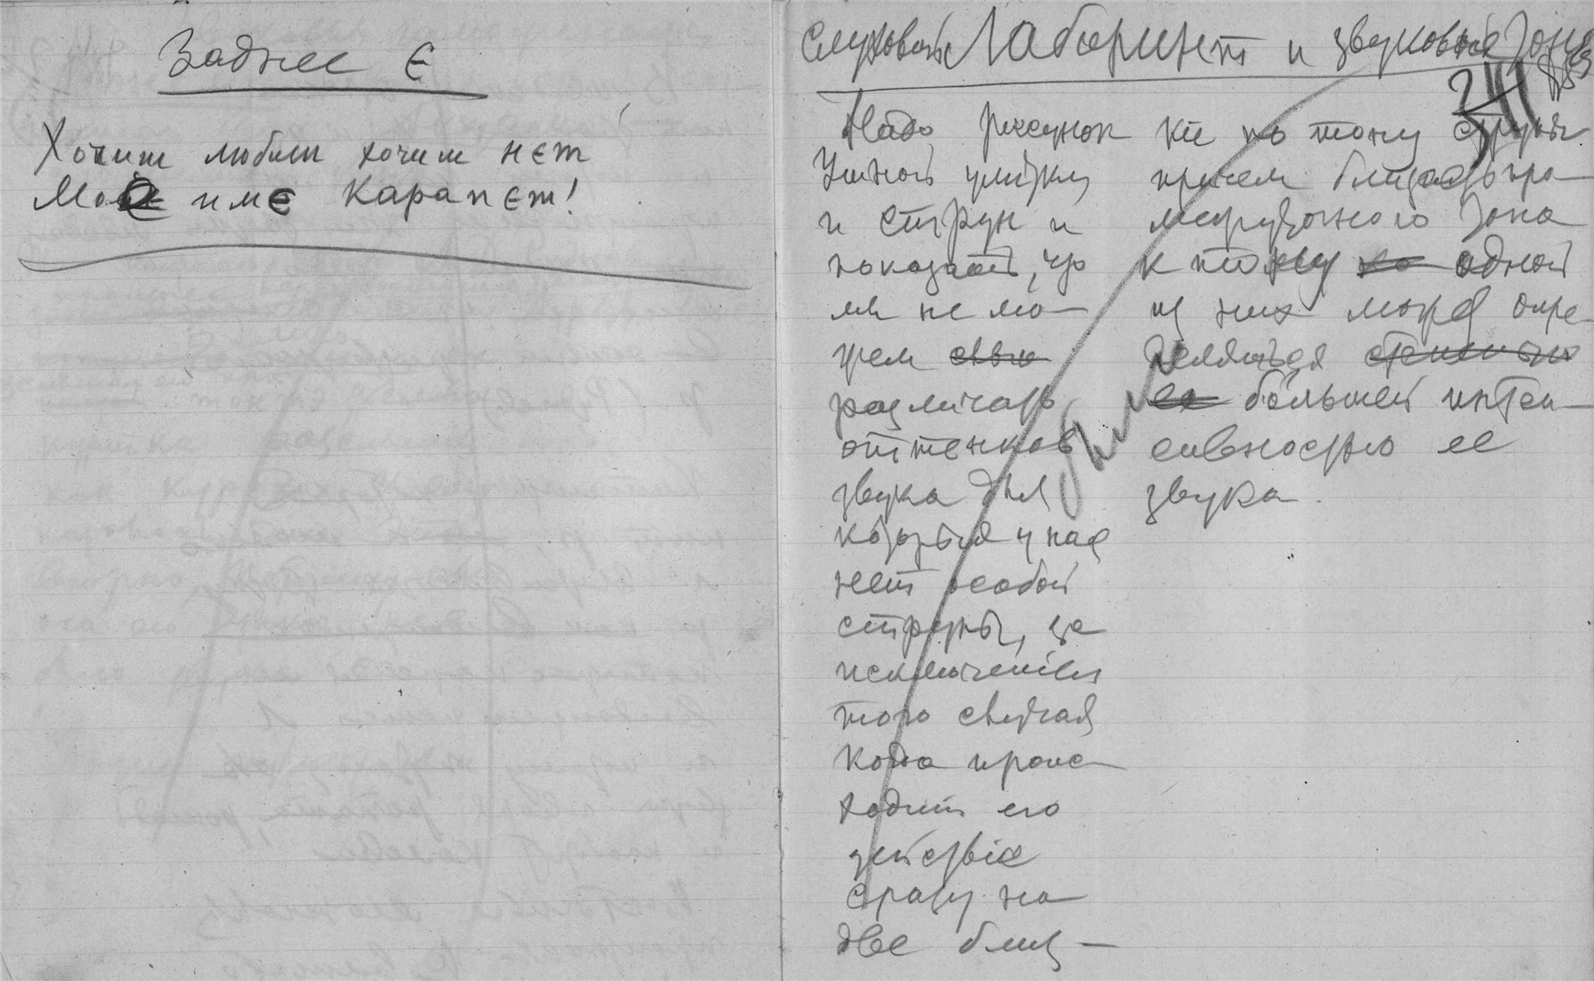 Заднее Є
Хочиш любиш хочиш нєт
Моє имє Карапєт!
Слуховой Лабиринт и звуковые Зоны
Надо рисунок
Ушной улитки
и струн и
показать, что
мы не мо-
жем свы
различать
оттенков
звука для
которыя у нас
нет особой
струны, за
исключеніем
того случая
когда проис
ходит его
действіе
сразу на
две близ-
кие по тону струны
причем близость про-
межуточного Зона
к тому ко одной
из них может опре
деляться степенью
ее большей интен-
сивностью ее
звука.